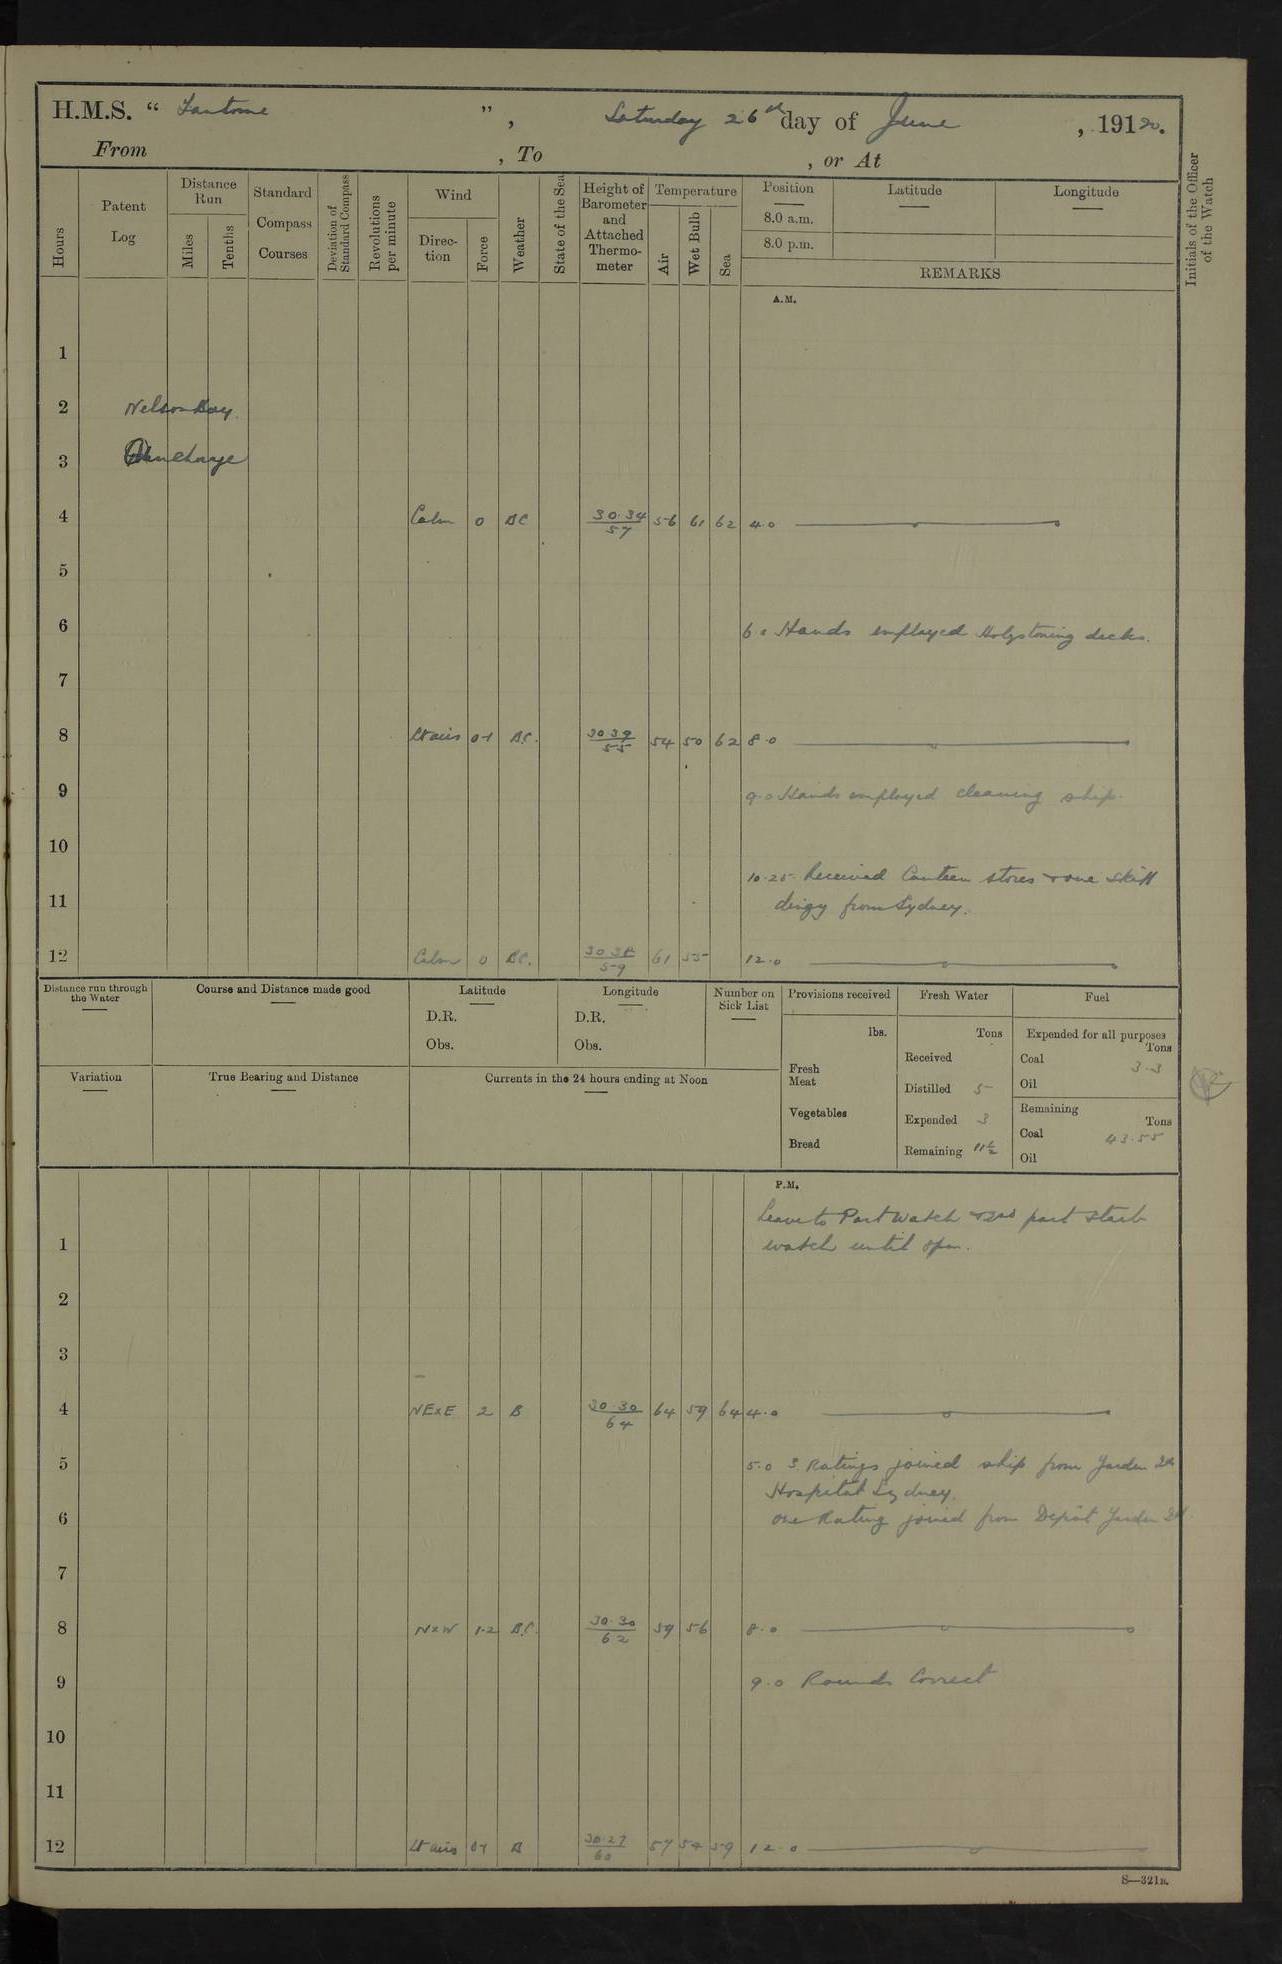 H.M.S. “ Fantome ”, Saturday 26th day of June , 19120.
From , To , or At
Hours
Patent Log
Distance Run
Miles
Tenths
Standard Compass Courses
Deviation of Standard Compass
Revolutions per minute
Wind
Direc-tion
Force
Weather
State of the Sea
Height of Barometer and Attached Thermo-meter
Temperature
Air
Wet Bulb
Sea
Position
8.0 a.m.
8.0 p.m.
Latitude
Longitude
REMARKS
Initials of the Officer of the Watch
A.M.
1
2 Nelson Bay.
3 Anchorage
4 Calm 0 BC 30.34/57 56 61 62 4.0
5
6 6.0 Hands employed Holystoning decks.
7
8 Lt airs 0-1 B.C. 30 39/55 54 50 62 8.0
9 9.0 Hands employed cleaning ship.
10
10.25. Received Canteen stores + one skiff
11 dingy from Sydney.
12 Calm 0 BC. 30 38/59 61 55 12.0
Distance run through the Water
Course and Distance made good
Latitude
D.R.
Obs.
Longitude
D.R.
Obs.
Number on Sick List
Provisions received
lbs.
Fresh Meat
Vegetables
Bread
Fresh Water
Tons
Received
Distilled 5
Expended 3
Remaining 11½
Fuel
Expended for all purposes
Tons
Coal 3.3
Oil
Remaining
Tons
Coal 43.55
Oil
Variation
True Bearing and Distance
Currents in the 24 hours ending at Noon
P.M.
Leave to Port watch + 2nd part Starb
1 watch until 8pm.
2
3
4 NExE 2 B 30.30/64 64 59 64 4.0
5 5.0 3 Ratings joined ship from Garden Is
Hospital Sydney.
6 one Rating joined from Depot Garden Isd.
7
8 NxW 1.2 B.C. 30.30/62 59 56 8.0
9 9.0 Rounds Correct
10
11
12 Lt airs 0-1 B 30.27/60 57 54 59 12.0
S—321B.